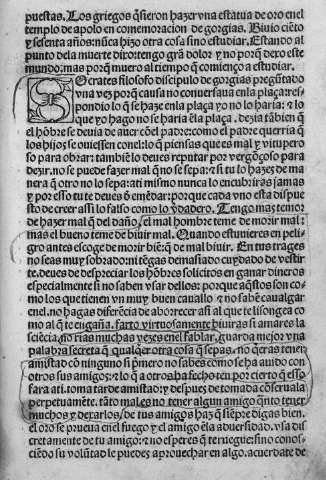 puestas. Los griegos q̃sieron hazer vna estatua de oro enel
templo de apolo en comemoracion de gorgias. Biuio ciẽto
y sesenta años: nũca hizo otra cosa sino estudiar. Estando al
punto dela muerte dixo: tengo grã dolor y no porq̃ dexo este
mundo: mas porq̃ muero al tiempo q̃ comiẽço a estudiar.
SOcrates filosofo discipulo de gorgias pregũtado
vna vez porq̃ causa no conuersaua enla plaça: res-
pondio lo q̃ se haze enla plaça yo no lo haria: ⁊ lo
que yo hago no se haria ẽla plaça. dezia tãbien q̃
el hõbre se deuia de auer cõnel padre: como el padre querria q̃
los hijos se ouiessen conel: lo q̃ piensas que es mal y vitupero
so para obrar: tambiẽ lo deues reputar por vergõçoso para
dezir. no se puede fazer mal q̃ no se sepa: ⁊ si tu lo hazes de ma
nera q̃ otro no lo sepa: ati mismo nunca lo encubriras jamas
y por esso tu te deues õ emẽdar: porque cada vno esta dispue
sto de creer assi lo falso como lo ṽdadero. Tengo mas temor
de hazer mal q̃ del daño, el mal hombre teme de morir mal:
mas el bueno teme de biuir mal. Quando estuuieres en peli-
gro antes escoge de morir biẽ: q̃ de mal biuir. En tus trages
no seas muy sobrado: ni tẽgas demasiado cuydado de vestir
te. deues de despreciar los hõbres solicitos en ganar dineros
especialmente si no saben vsar dellos: porque aq̃stos son co-
mo los que tienen vn muy buen cauallo ⁊ no sabẽ caualgar
enel. no hagas diferẽcia de aborrecer assi al que te lisongea co
mo al q̃ te engaña. farto virtuosamente biuiras si amares la
sciẽcia. no rias muchas vezes enel fablar, guarda mejor vna
palabra secreta q̃ qualq̃er otra cosa q̃ sepas. no q̃eras tener
amistad cõ ninguno si p̃mero no sabes como se ha auido con
otros sus amigos: ⁊ lo q̃ a otros ha fecho ten por cierto q̃ esso
fara ati. toma tarde amistad: y despues de tomada cõseruala
perpetuamẽte. tãto mal es no tener algun amigo q̃nto tener
muchos y dexarlos, de tus amigos haz q̃ siẽpre digas bien.
el oro se prueua enel fuego y el amigo ẽla aduersidad. vsa di
scretamente de tu amigo: ⁊ no esperes q̃ te ruegue: sino conos-
ciẽdo su volũtad le puedes aprouechar en algo. acuerdate de